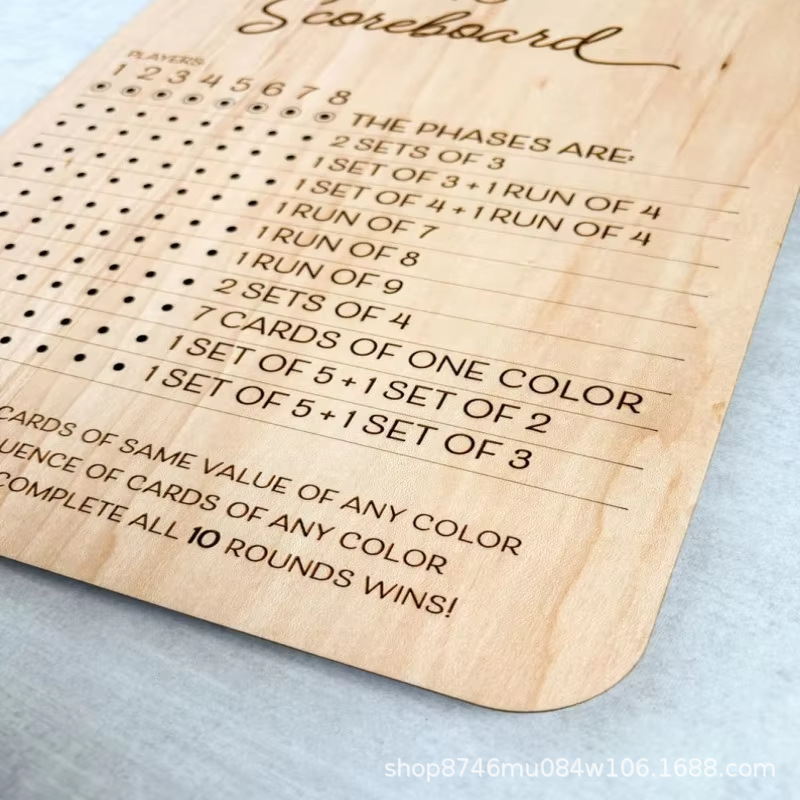 Scoreboard
PLAYERS:
1 2 3 4 5 6 7 8
THE PHASES ARE:
2 SETS OF 3
1 SET OF 3 + 1 RUN OF 4
1 SET OF 4 + 1 RUN OF 4
1 RUN OF 7
1 RUN OF 8
1 RUN OF 9
2 SETS OF 4
7 CARDS OF ONE COLOR
1 SET OF 5 + 1 SET OF 2
1 SET OF 5 + 1 SET OF 3
CARDS OF SAME VALUE OF ANY COLOR
UENCE OF CARDS OF ANY COLOR
COMPLETE ALL 10 ROUNDS WINS!
shop8746mu084w106.1688.com